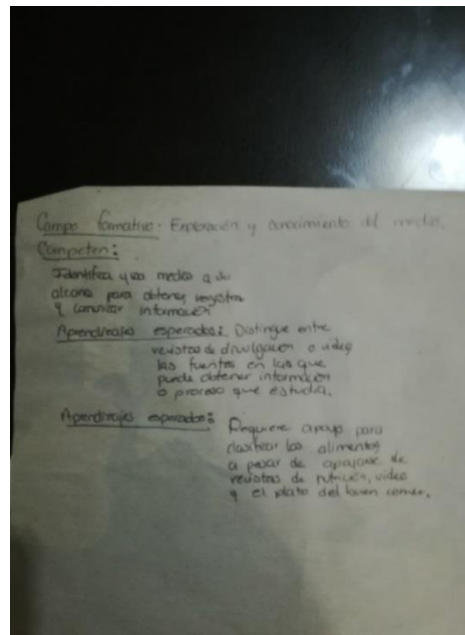 Campo formativo: Exploración y conocimiento del medio.
Competen:
Identifica y usa medios a su
alcance para obtener registrar
y comunicar información
Aprendizajes esperados: Distingue entre
revistas de divulgación o video
las fuentes en las que
puede obtener información
o proceso que estudia.
Aprendizajes esperados: Requiere apoyo para
clasificar los alimentos
a pesar de apoyarse de
revistas de nutrición, video
y el plato del buen comer.